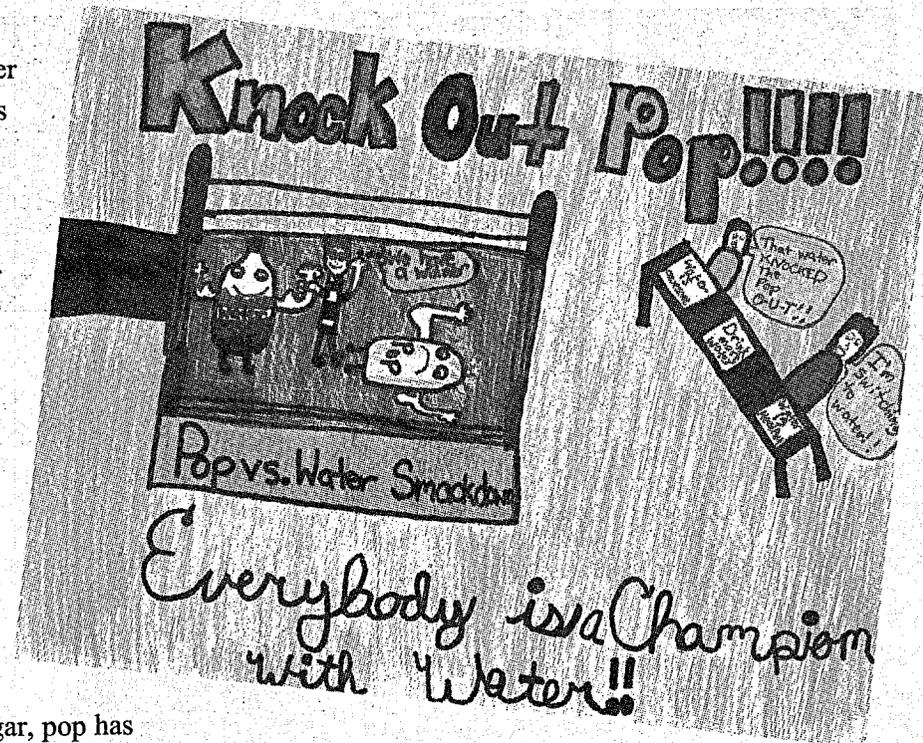 er
s
Knock Out Pop!!!!
We have
a winner
That water
KNOCKED
the
Pop
O-U-T!!
Drink
Water
I'm
switching
to
water!!
Pop vs. Water Smackdown
Everybody is a Champion
with Water!!
gar, pop has